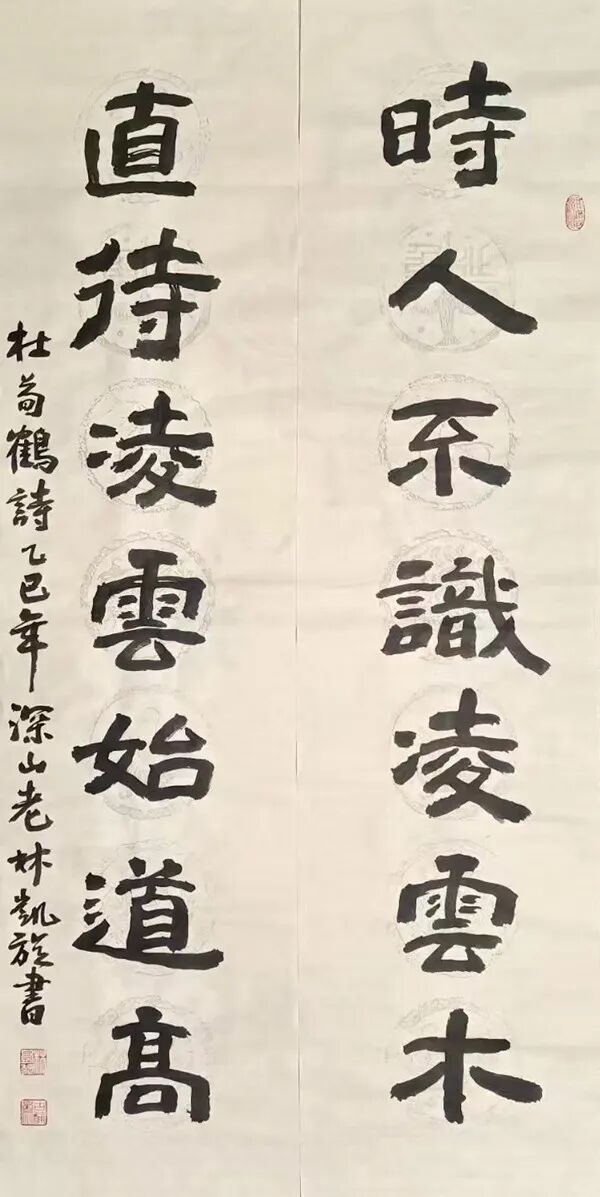 時人不識凌雲木
直待凌雲始道高
杜荀鶴詩乙巳年深山老林凱旋書